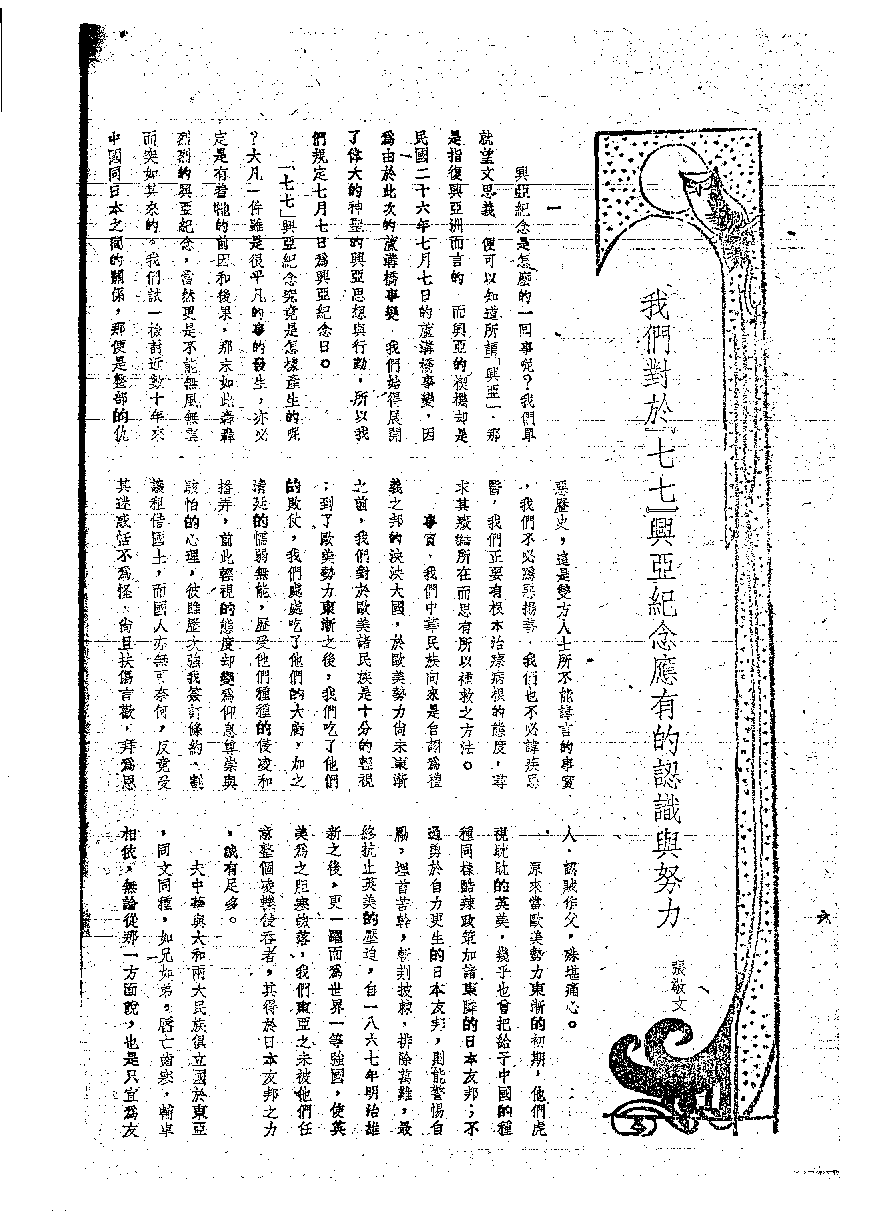 我們對於「七七」興亞紀念應有的認識與努力
張敬文
一
興亞紀念是怎麼的一回事呢?我們單
就望文思義,便可以知道所謂「興亞」,那
是指復興亞洲而言的,而興亞的楔機却是
民國二十六年七月七日的蘆溝橋事變,因
為由於此次的蘆溝橋事變,我們始得展開
了偉大的神聖的興亞思想與行動,所以我
們規定七月七日為興亞紀念日。
「七七」興亞紀念究竟是怎樣產生的呢
?大凡一件雖是很平凡的事的發生,亦必
定是有着牠的前因和後果,那末如此轟轟
烈烈的興亞紀念,當然更是不能無風無雲
而突如其來的。我們試一檢討近數十年來
中國同日本之間的關係,那便是整部的仇
惡歷史,這是雙方人士所不能諱言的事實
,我們不必為惡揚善,我們也不必諱疾忌
醫,我們正要有根本治療病根的態度,尋
求其癥結所在而思有所以補救之方法。
事實,我們中華民族向來是自認為禮
義之邦的泱泱大國,於歐美勢力尚未東漸
之前,我們對於歐美諸民族是十分的輕視
;到了歐美勢力東漸之後,我們吃了他們
的敗仗,我們處處吃了他們的大虧,加之
清廷的懦弱無能,歷受他們種種的侵凌和
播弄,前此輕視的態度却變為仰息尊崇與
駭怕的心理,彼雖歷次強我簽訂條約、割
讓租借國土,而國人亦無可奈何,反竟受
其迷惑恬不為怪、尚且扶傷言歡,拜為恩
人,認賊作父,殊堪痛心。
原來當歐美勢力東漸的初期,他們虎
視眈眈的英美,幾乎也曾把給予中國的種
種同樣酷辣政策加諸東隣的日本友邦;不
過勇於自力更生的日本友邦,則能警惕自
勵,埋首苦幹,斬荆披棘,排除萬難,最
終抗止英美的壓迫,自一八六七年明治維
新之後,更一躍而為世界一等強國,使英
美為之胆寒魂落,我們東亞之未被他們任
意整個凌轢侵吞者,其得於日本友邦之力
,誠有足多。
大中華與大和兩大民族俱立國於東亞
,同文同種,如兄如弟。唇亡齒寒,輔車
相依,無論從那一方面說,也是只宜為友
六